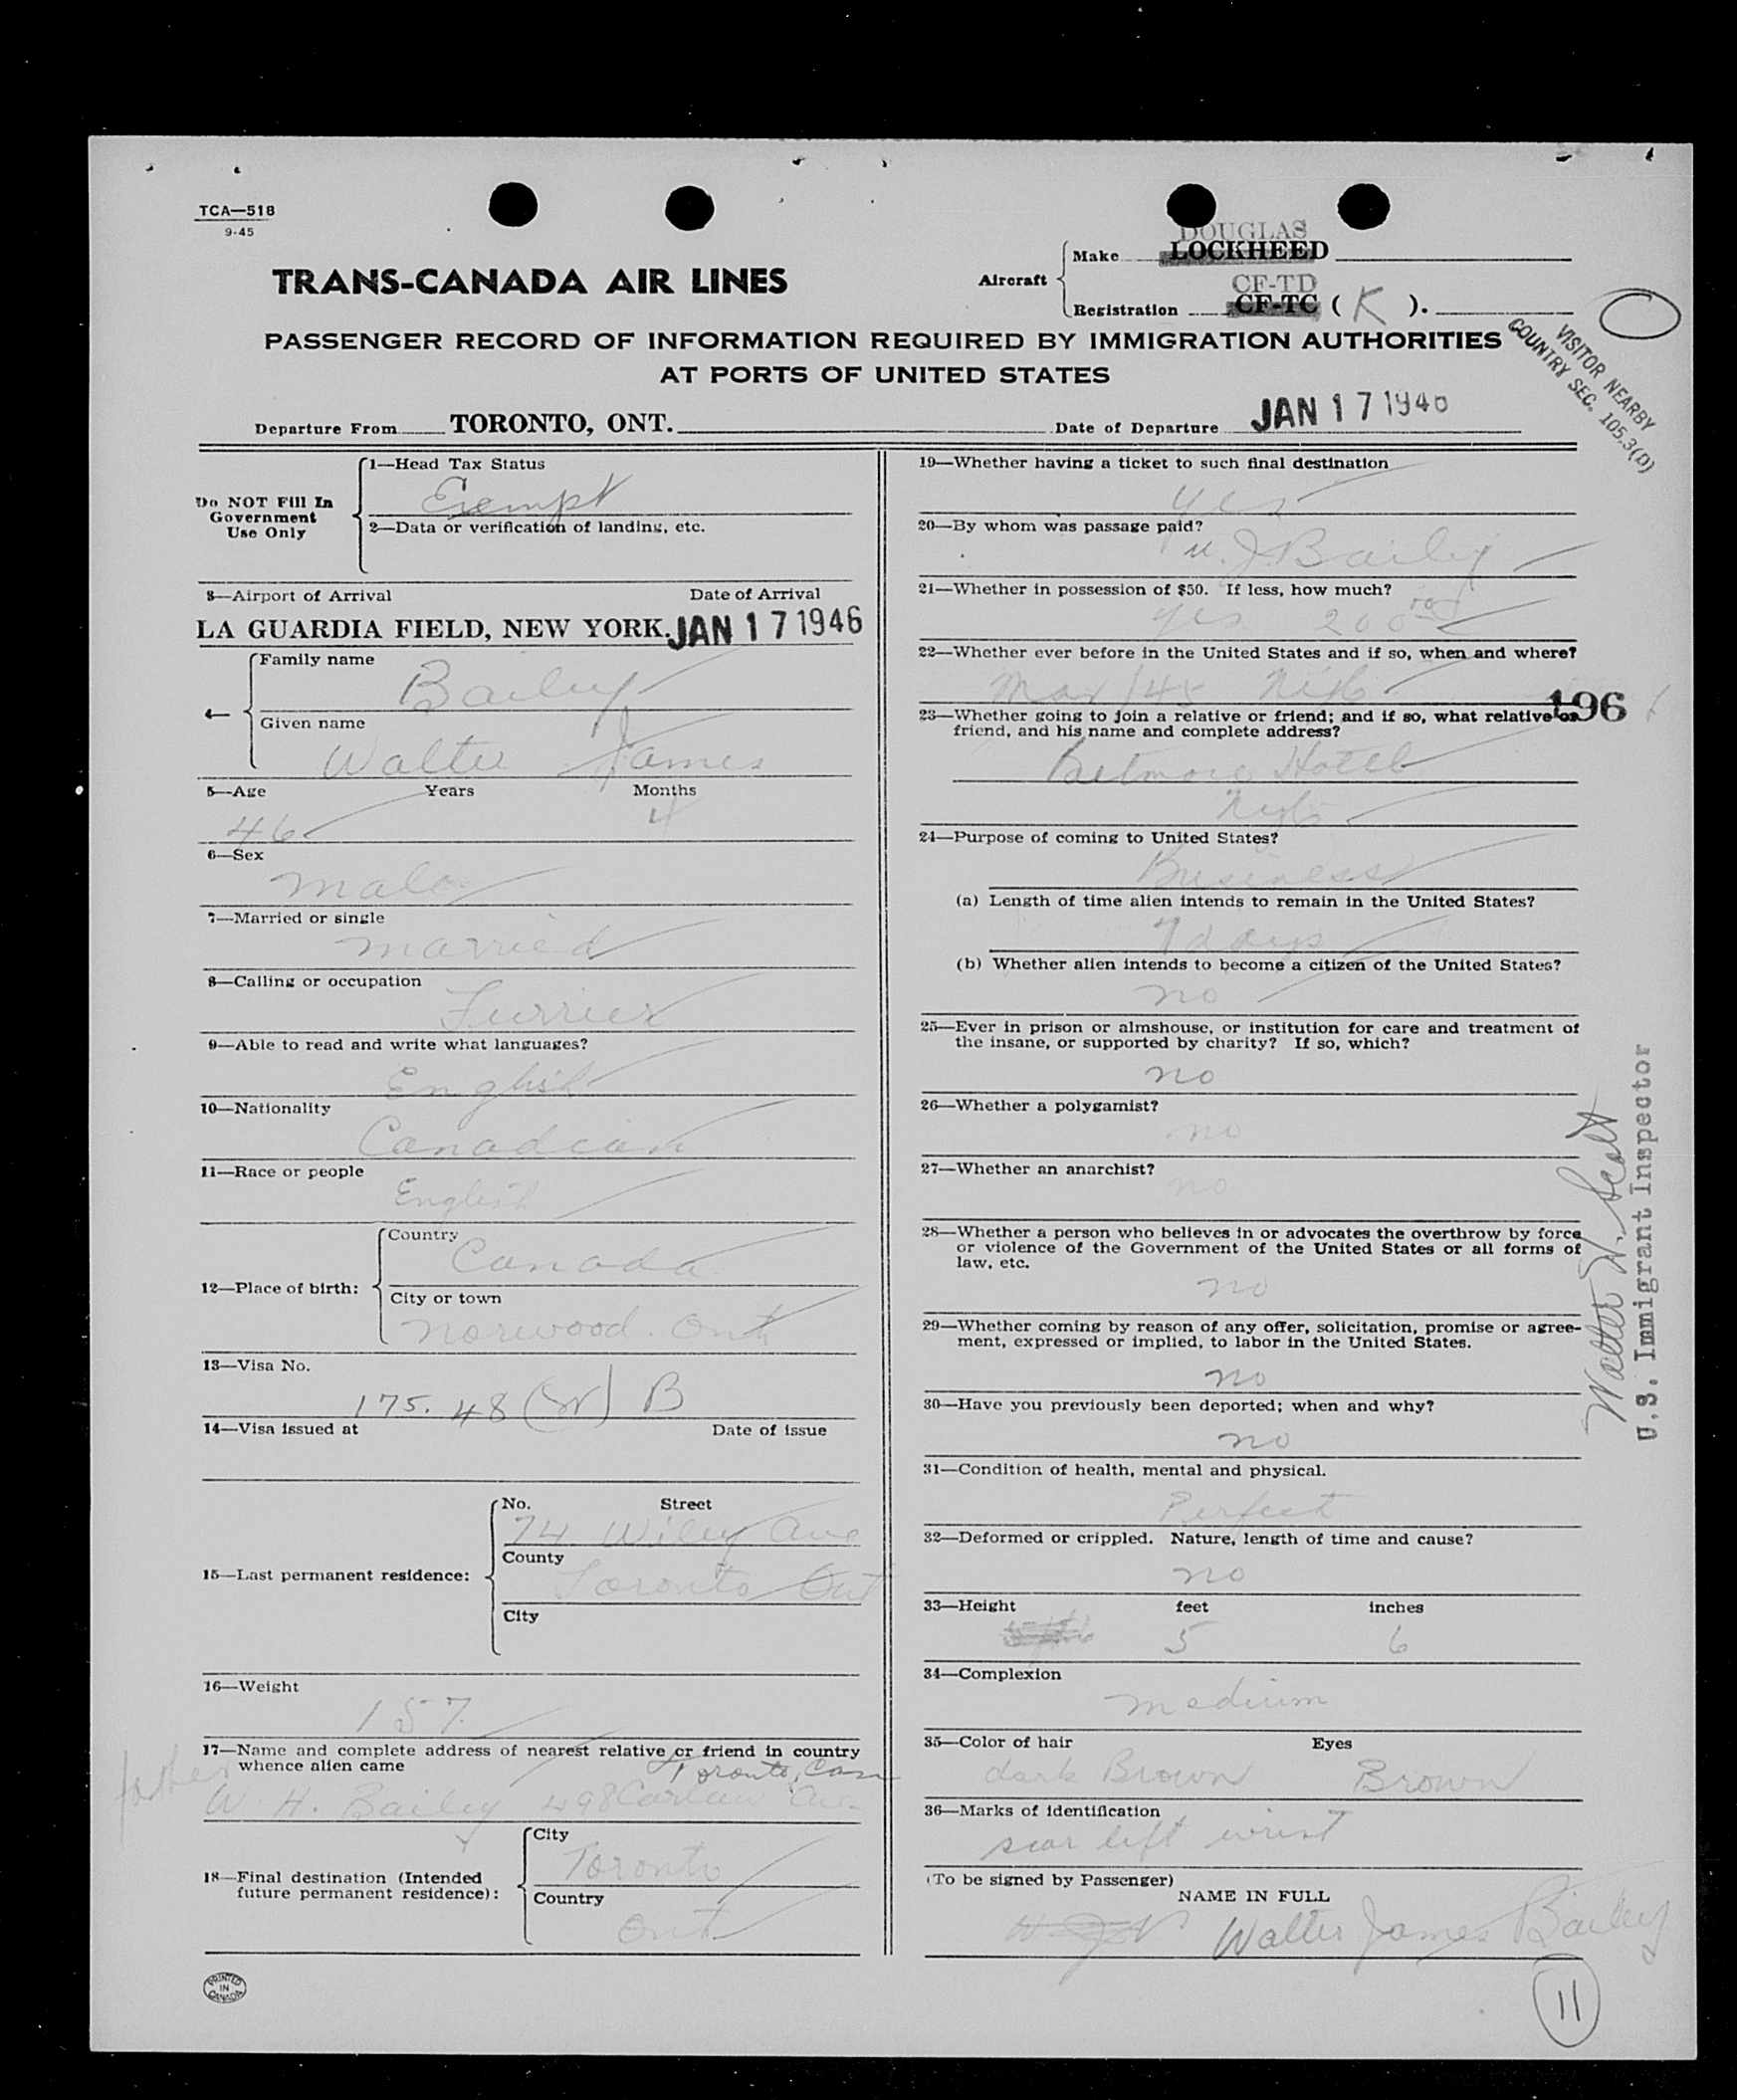 TCA—518
9-45
DOUGLAS
Aircraft
Make LOCKHEED
CF-TD
Registration CF-TC ( K ).
TRANS-CANADA AIR LINES
PASSENGER RECORD OF INFORMATION REQUIRED BY IMMIGRATION AUTHORITIES
AT PORTS OF UNITED STATES
VISITOR NEARBY
COUNTRY SEC. 105.3(D)
Departure From TORONTO, ONT. Date of Departure JAN 17 1946
Do NOT Fill In
Government
Use Only
1—Head Tax Status
Exempt
2—Data or verification of landing, etc.
3—Airport of Arrival Date of Arrival
LA GUARDIA FIELD, NEW YORK. JAN 17 1946
4—
Family name
Bailey
Given name
Walter James
5—Age Years Months
46 4
6—Sex
male
7—Married or single
married
8—Calling or occupation
Furrier
9—Able to read and write what languages?
English
10—Nationality
Canadian
11—Race or people
English
12—Place of birth:
Country
Canada
City or town
Norwood. Ont
13—Visa No.
175. 48 ( ) B
14—Visa issued at Date of issue
15—Last permanent residence:
No. Street
74 Wiley Ave
County
Toronto Ont
City
16—Weight
157
17—Name and complete address of nearest relative or friend in country
whence alien came
Toronto, Can
father
W. H. Bailey 498 Carlaw Ave.
18—Final destination (Intended
future permanent residence):
City
Toronto
Country
Ont
PRINTED
IN
CANADA
19—Whether having a ticket to such final destination
yes
20—By whom was passage paid?
W. J. Bailey
21—Whether in possession of $50. If less, how much?
yes 200
22—Whether ever before in the United States and if so, when and where?
/45
196
23—Whether going to join a relative or friend; and if so, what relative or
friend, and his name and complete address?
Hotel
24—Purpose of coming to United States?
Business
(a) Length of time alien intends to remain in the United States?
7 days
(b) Whether alien intends to become a citizen of the United States?
no
25—Ever in prison or almshouse, or institution for care and treatment of
the insane, or supported by charity? If so, which?
no
26—Whether a polygamist?
no
27—Whether an anarchist?
no
28—Whether a person who believes in or advocates the overthrow by force
or violence of the Government of the United States or all forms of
law, etc.
no
29—Whether coming by reason of any offer, solicitation, promise or agree-
ment, expressed or implied, to labor in the United States.
no
30—Have you previously been deported; when and why?
no
31—Condition of health, mental and physical.
Perfect
32—Deformed or crippled. Nature, length of time and cause?
no
33—Height feet inches
5 6
34—Complexion
medium
35—Color of hair Eyes
dark Brown Brown
36—Marks of identification
scar left wrist
(To be signed by Passenger)
NAME IN FULL
Walter James Bailey
11
Walter W. Scott
U.S. Immigrant Inspector